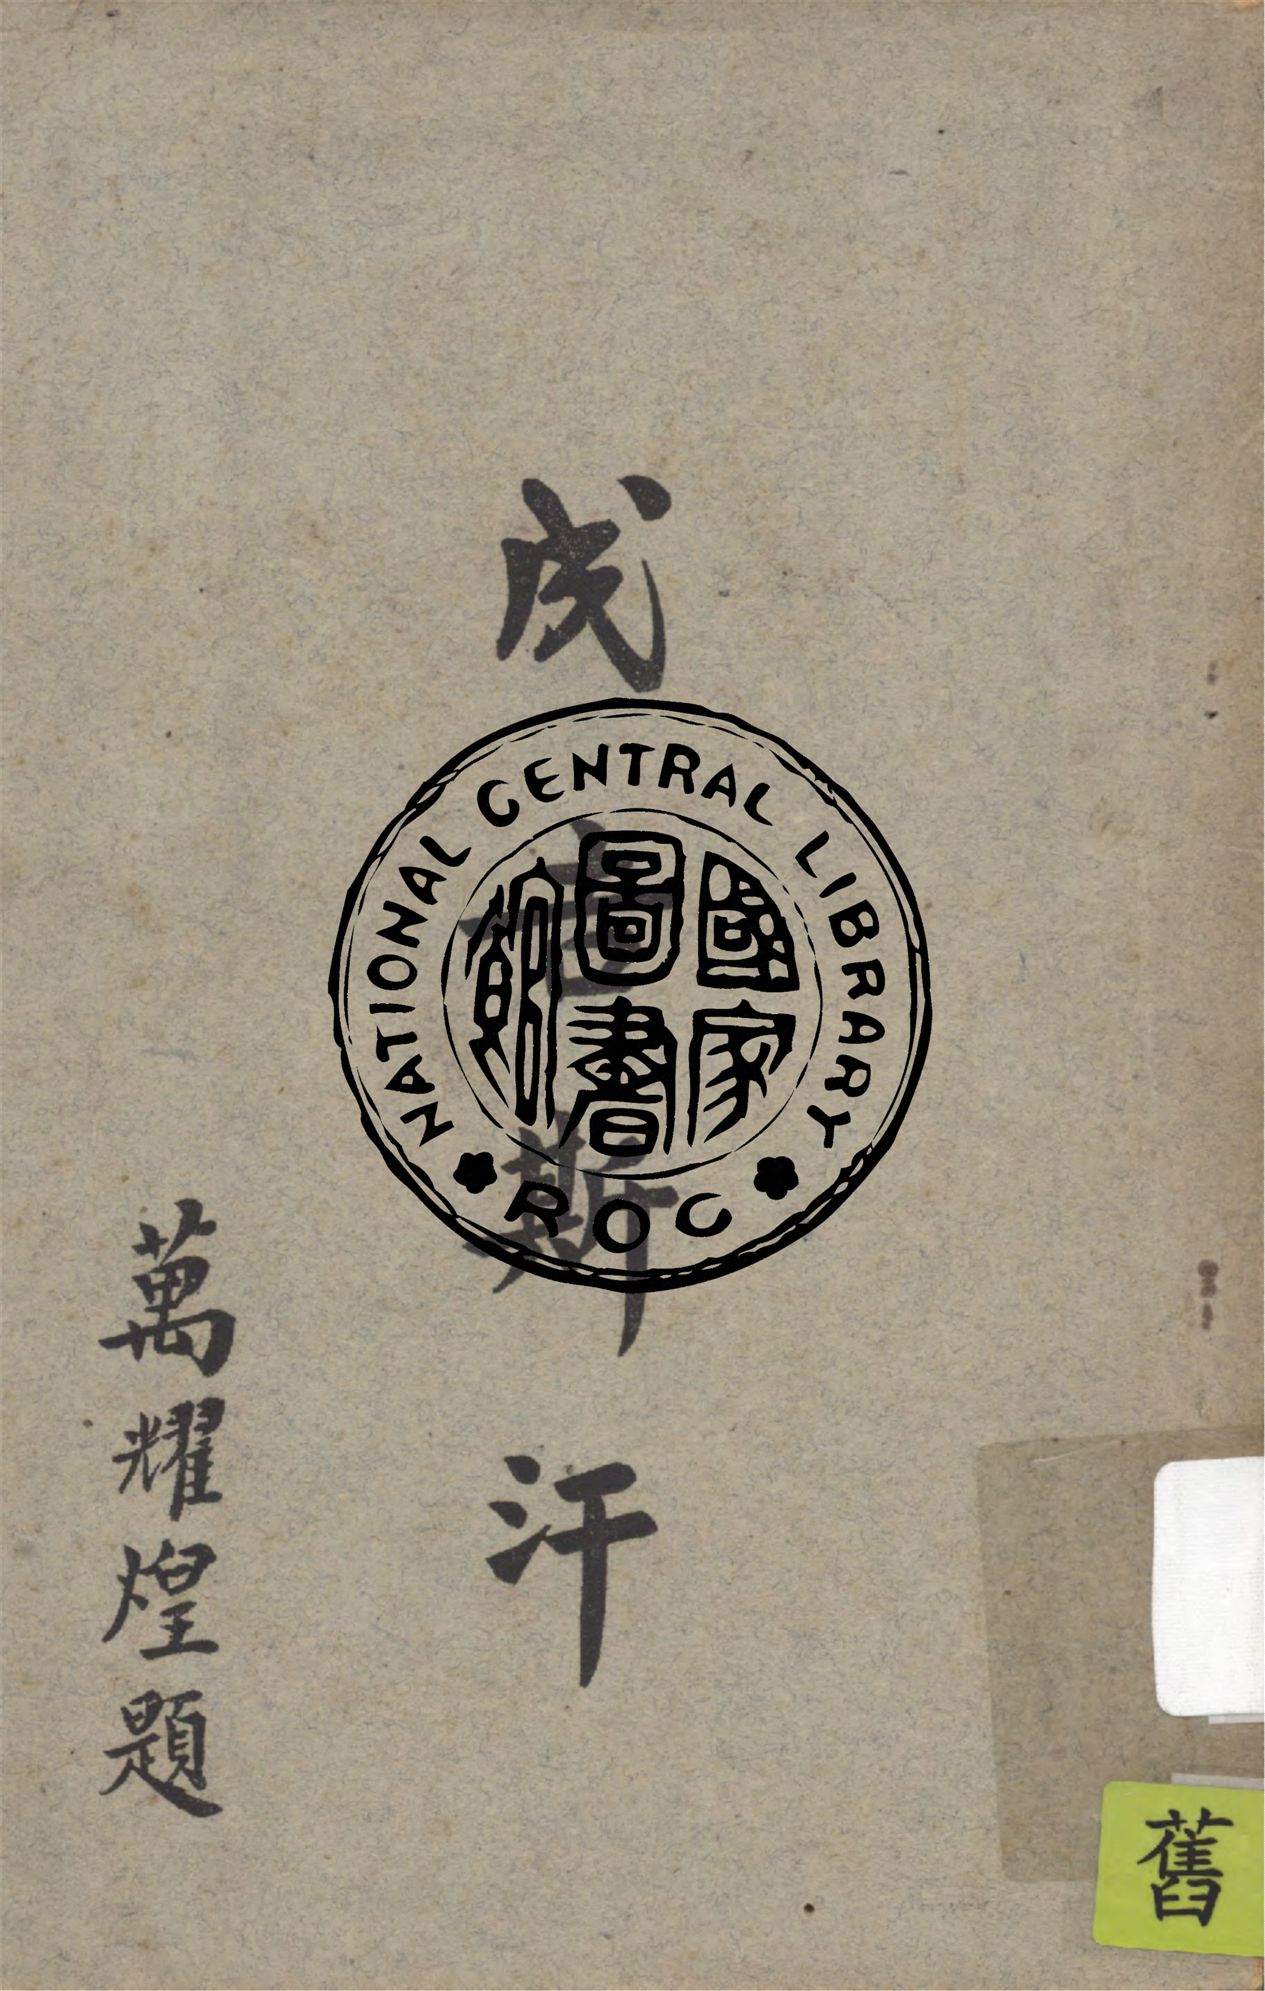 成吉斯汗
萬耀煌題
NATIONAL CENTRAL LIBRARY
國家
圖書
館
ROC
舊